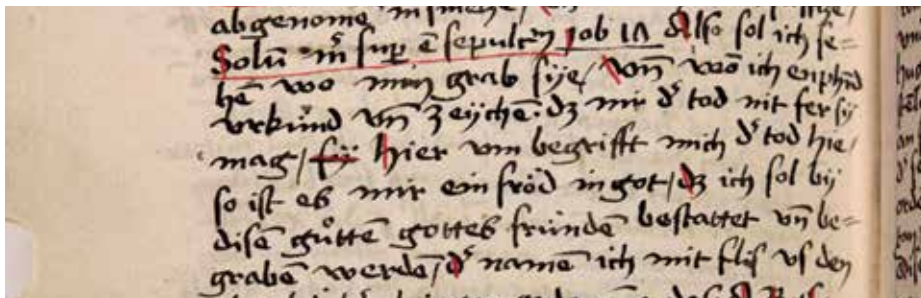 abgenome
Solū m̄ sup ē sepulcrū Job 17 Also sol ich se=
hē wo min grab sÿe / Vn̄ wo ich enphind
vrkünd vn̄ Zeychē · dz mir d' tod nit fer sy
mag / hier vm begrifft mich d' tod hie /
so ist es mir ein fröd in got / dz ich sol by
disē gůttē gottes fründē bestattet vn̄ be=
grabē werdē / d' namē ich mit flis vs den